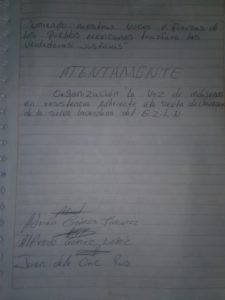 "uniendo nuestras voces y fuerzas de
los pueblos mexicanos triunfara las
verdaderas justicias"
ATENTAMENTE
Organización la Voz de indígenas
en resistencia adherente a la sexta declaración
de la selva lacandona del E.Z.L.N.
Adrian Gómez Jiménez
Alfredo Gómez López
Juan de la Cruz Ruiz